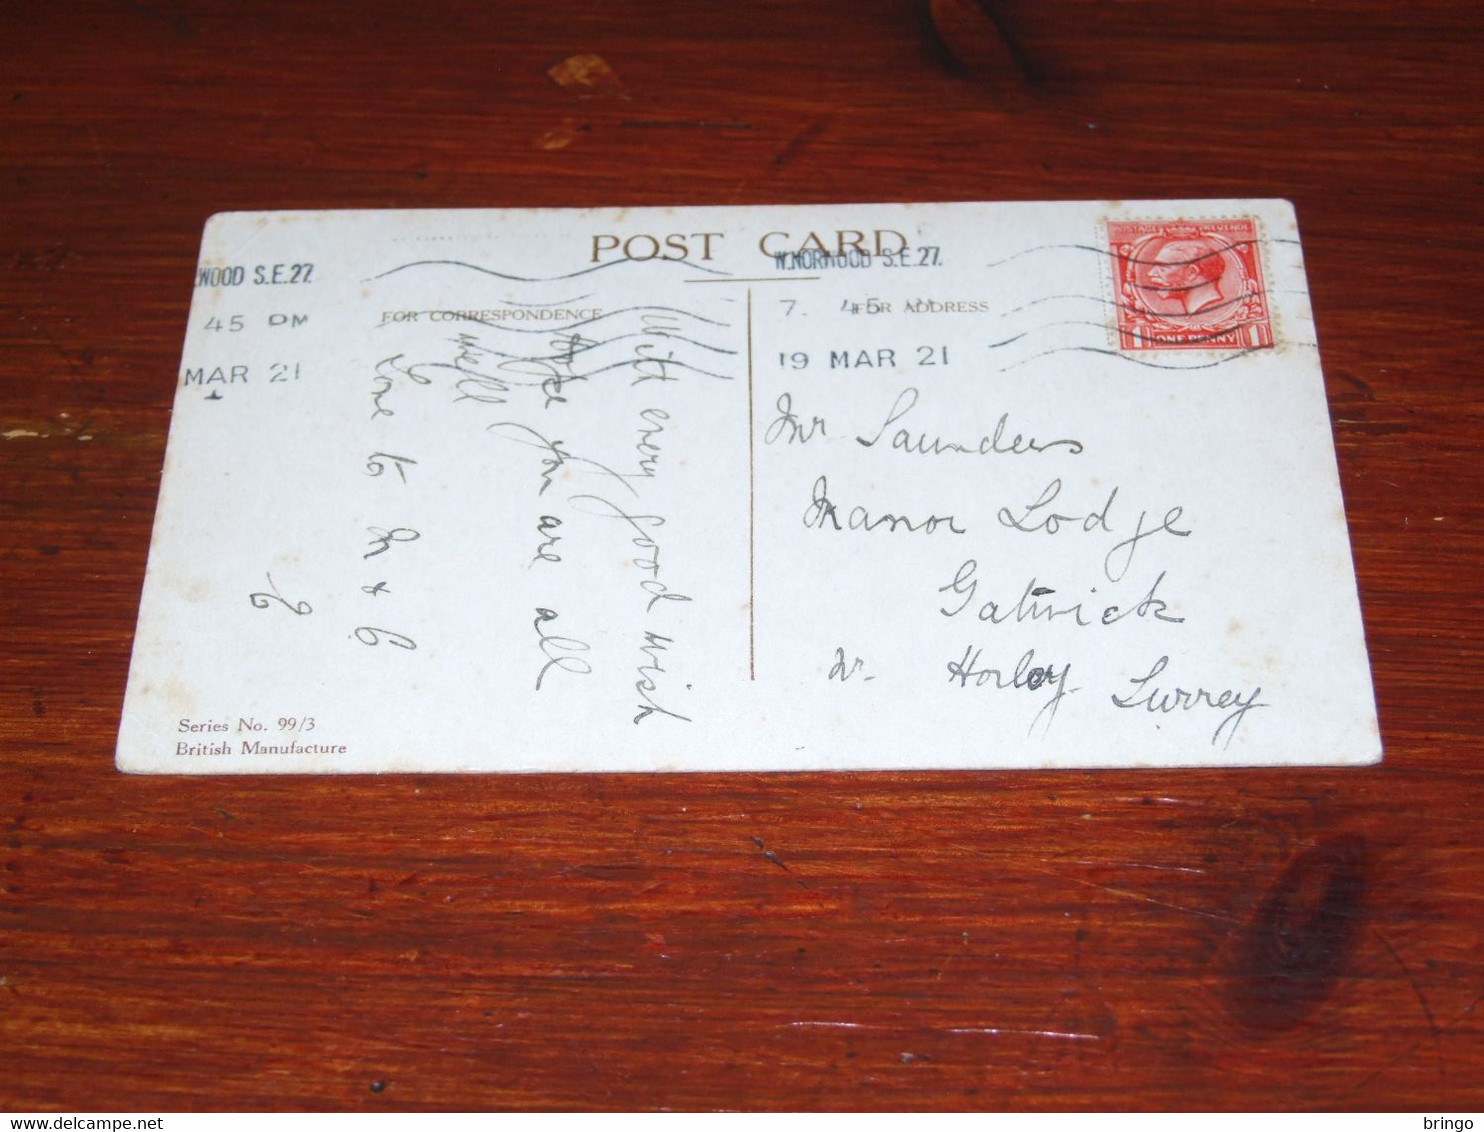 POST CARD
WOOD S.E.27.
45 PM
MAR 21
W.NORWOOD S.E.27.
7. 45 PM
19 MAR 21
FOR CORRESPONDENCE
FOR ADDRESS
POSTAGE REVENUE
1 ONE PENNY 1
With every good wish
hope you are all
well
Love to M & C
Mr Saunders
Manor Lodge
Gatwick
Nr. Horley Surrey
Series No. 99/3
British Manufacture
bringo